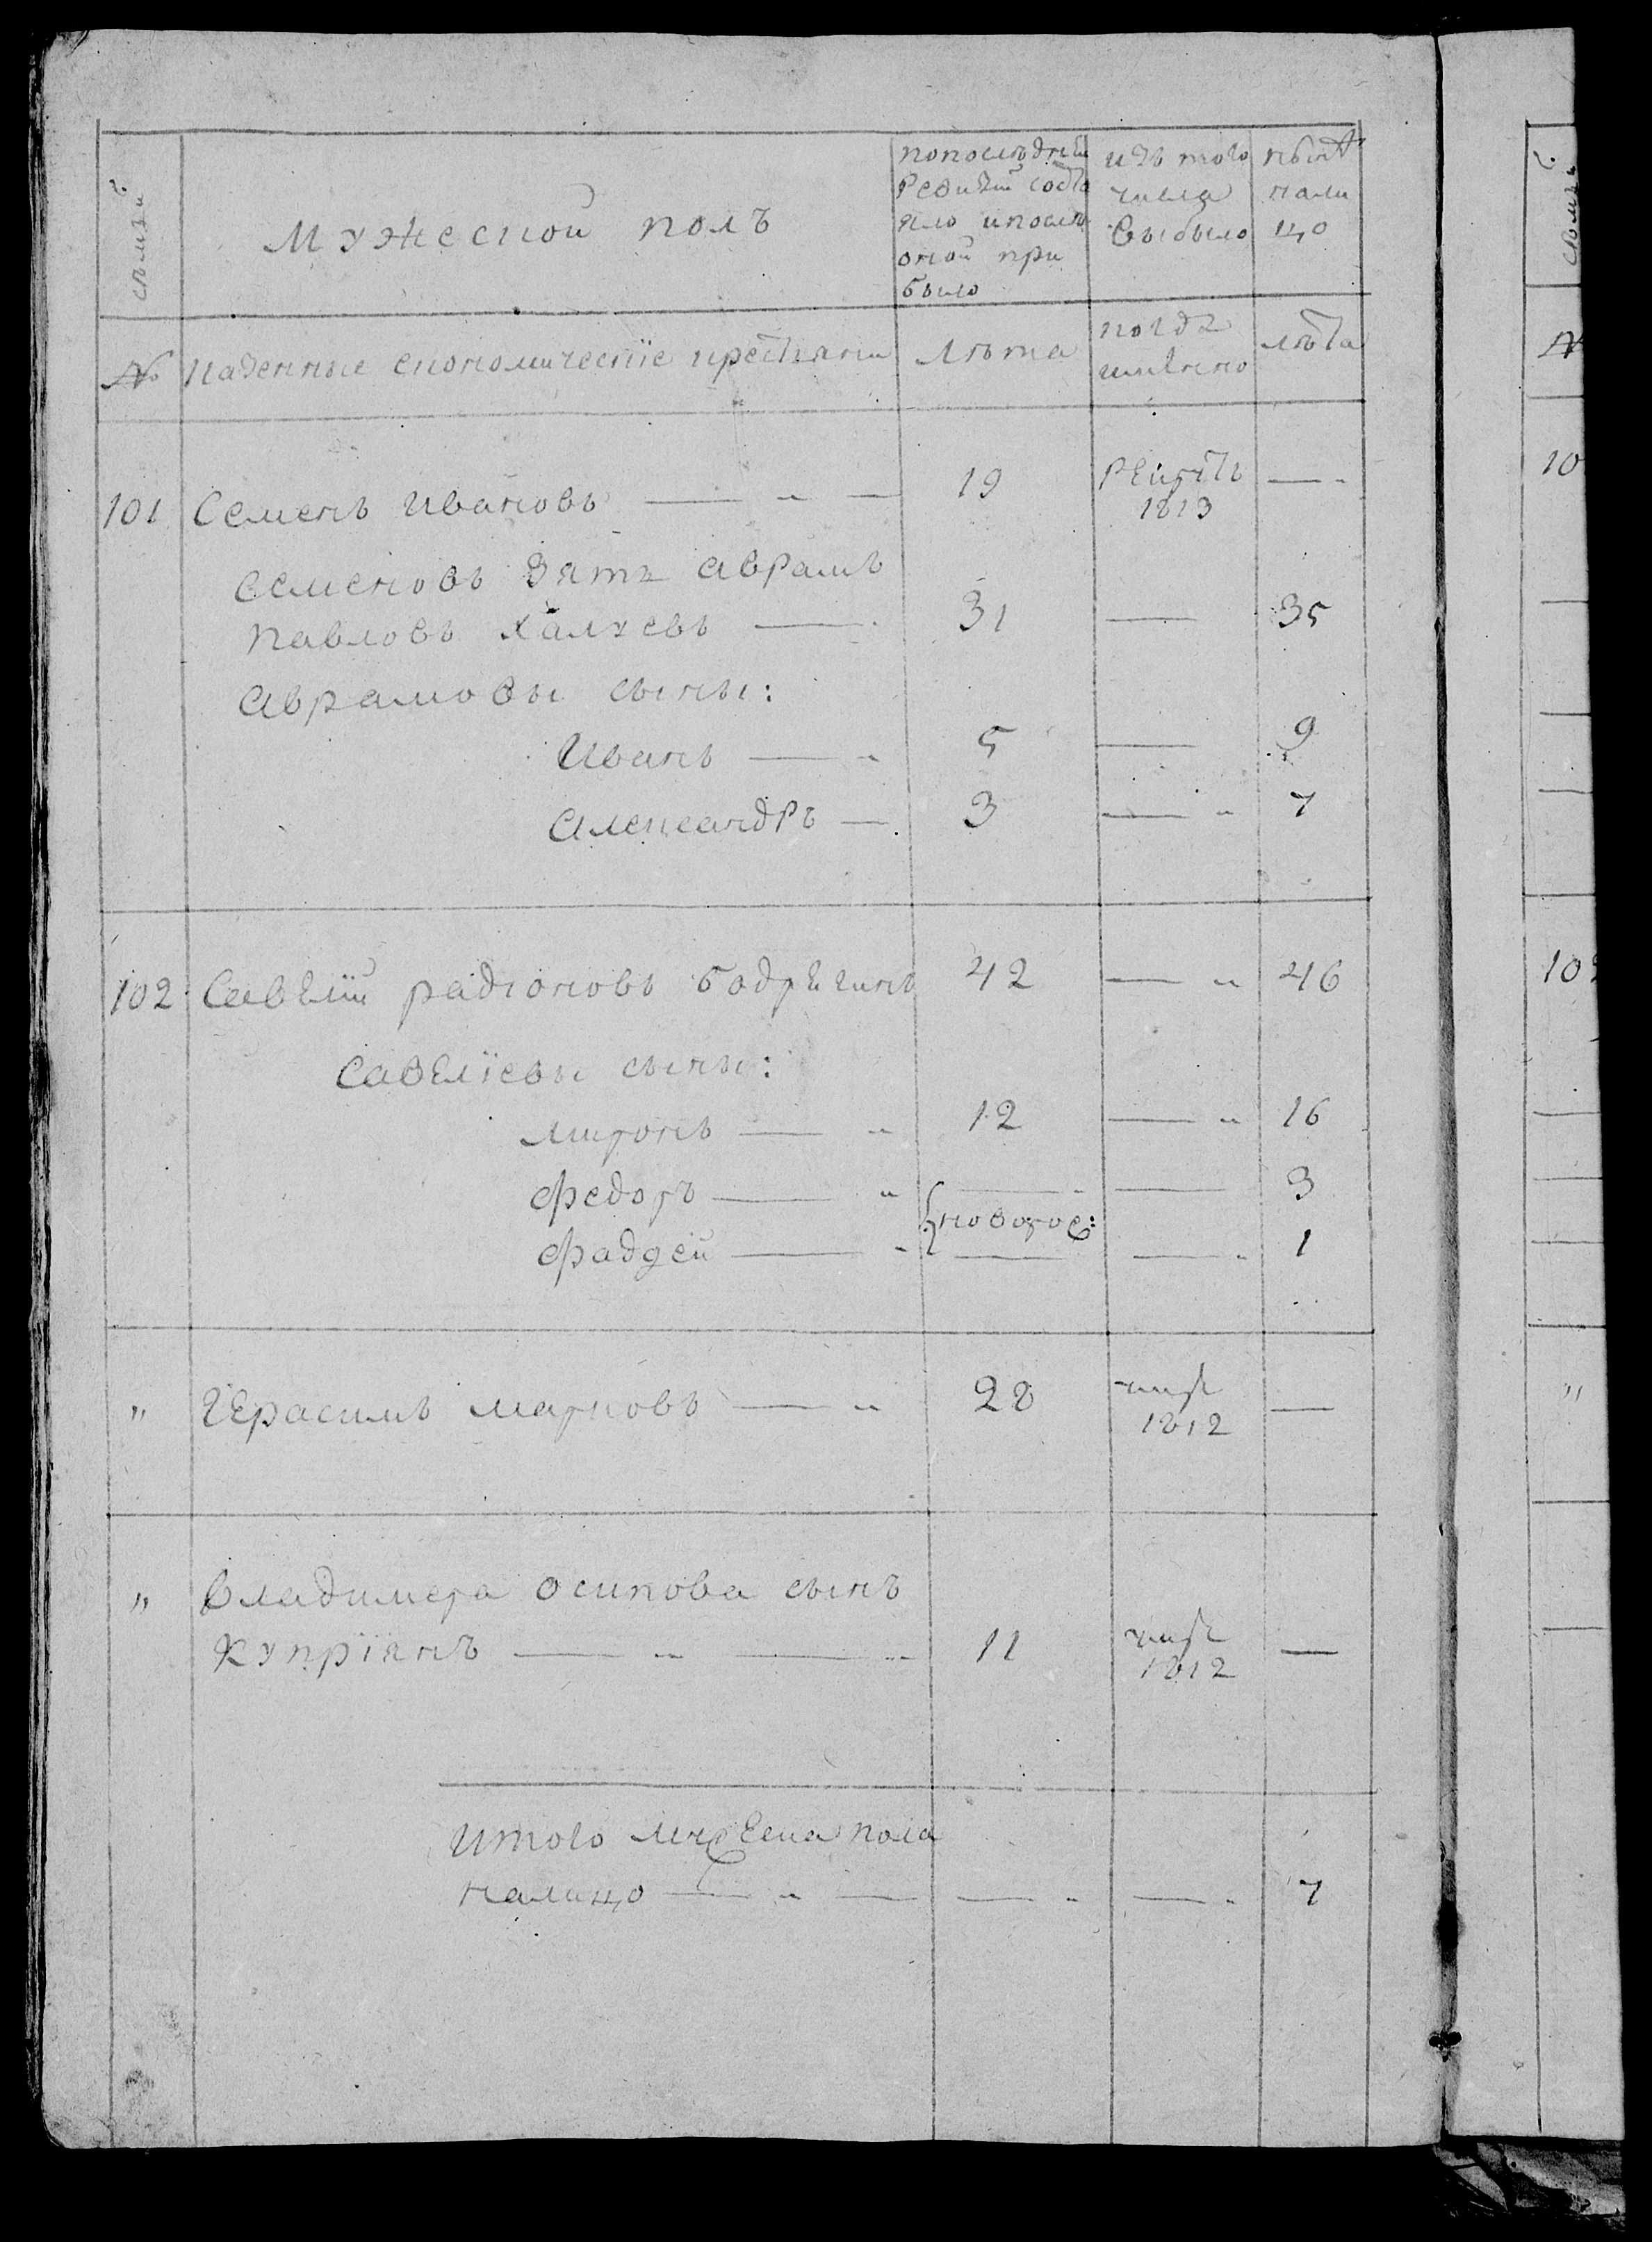 семьи
Мужеской полъ
попоследней
Ревизий состо
яло ипосле
оной при
было
изъ того
числа
Выбыло
ныне
нали
цо
№ казенные економическïе крестьяни
Лета
когда
имянно
лета
101 Семенъ Ивановъ — „ — 19 Рекрутъ —„
1813
Семеновъ Зять Аврамъ
Павловъ Халуевъ — 31 — 35
Аврамовы сыны:
Иванъ — „ 5 — 9
Александръ — 3 — „ 7
102 Савелiй радiоновъ бодрЕгинъ 42 — „ 46
Савелïевы сыны:
миронъ — „ 12 — „ 16
Федоръ — „ — „ — 3
новорож:
Фаддей — „ — — „ 1
„ Герасимъ марковъ — „ 28 умре —
1812
„ Владимера осипова сынъ
Купрïянъ — „ — „ 11 умре —
1812
Итого мужеска пола
налицо — „ — — „ — „ 7